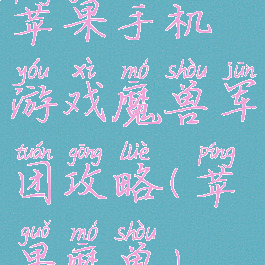 苹果手机
yóu xì mó shòu jūn
游戏魔兽军
tuán gōng lüè píng
团攻略(苹
guǒ mó shòu
果魔兽)